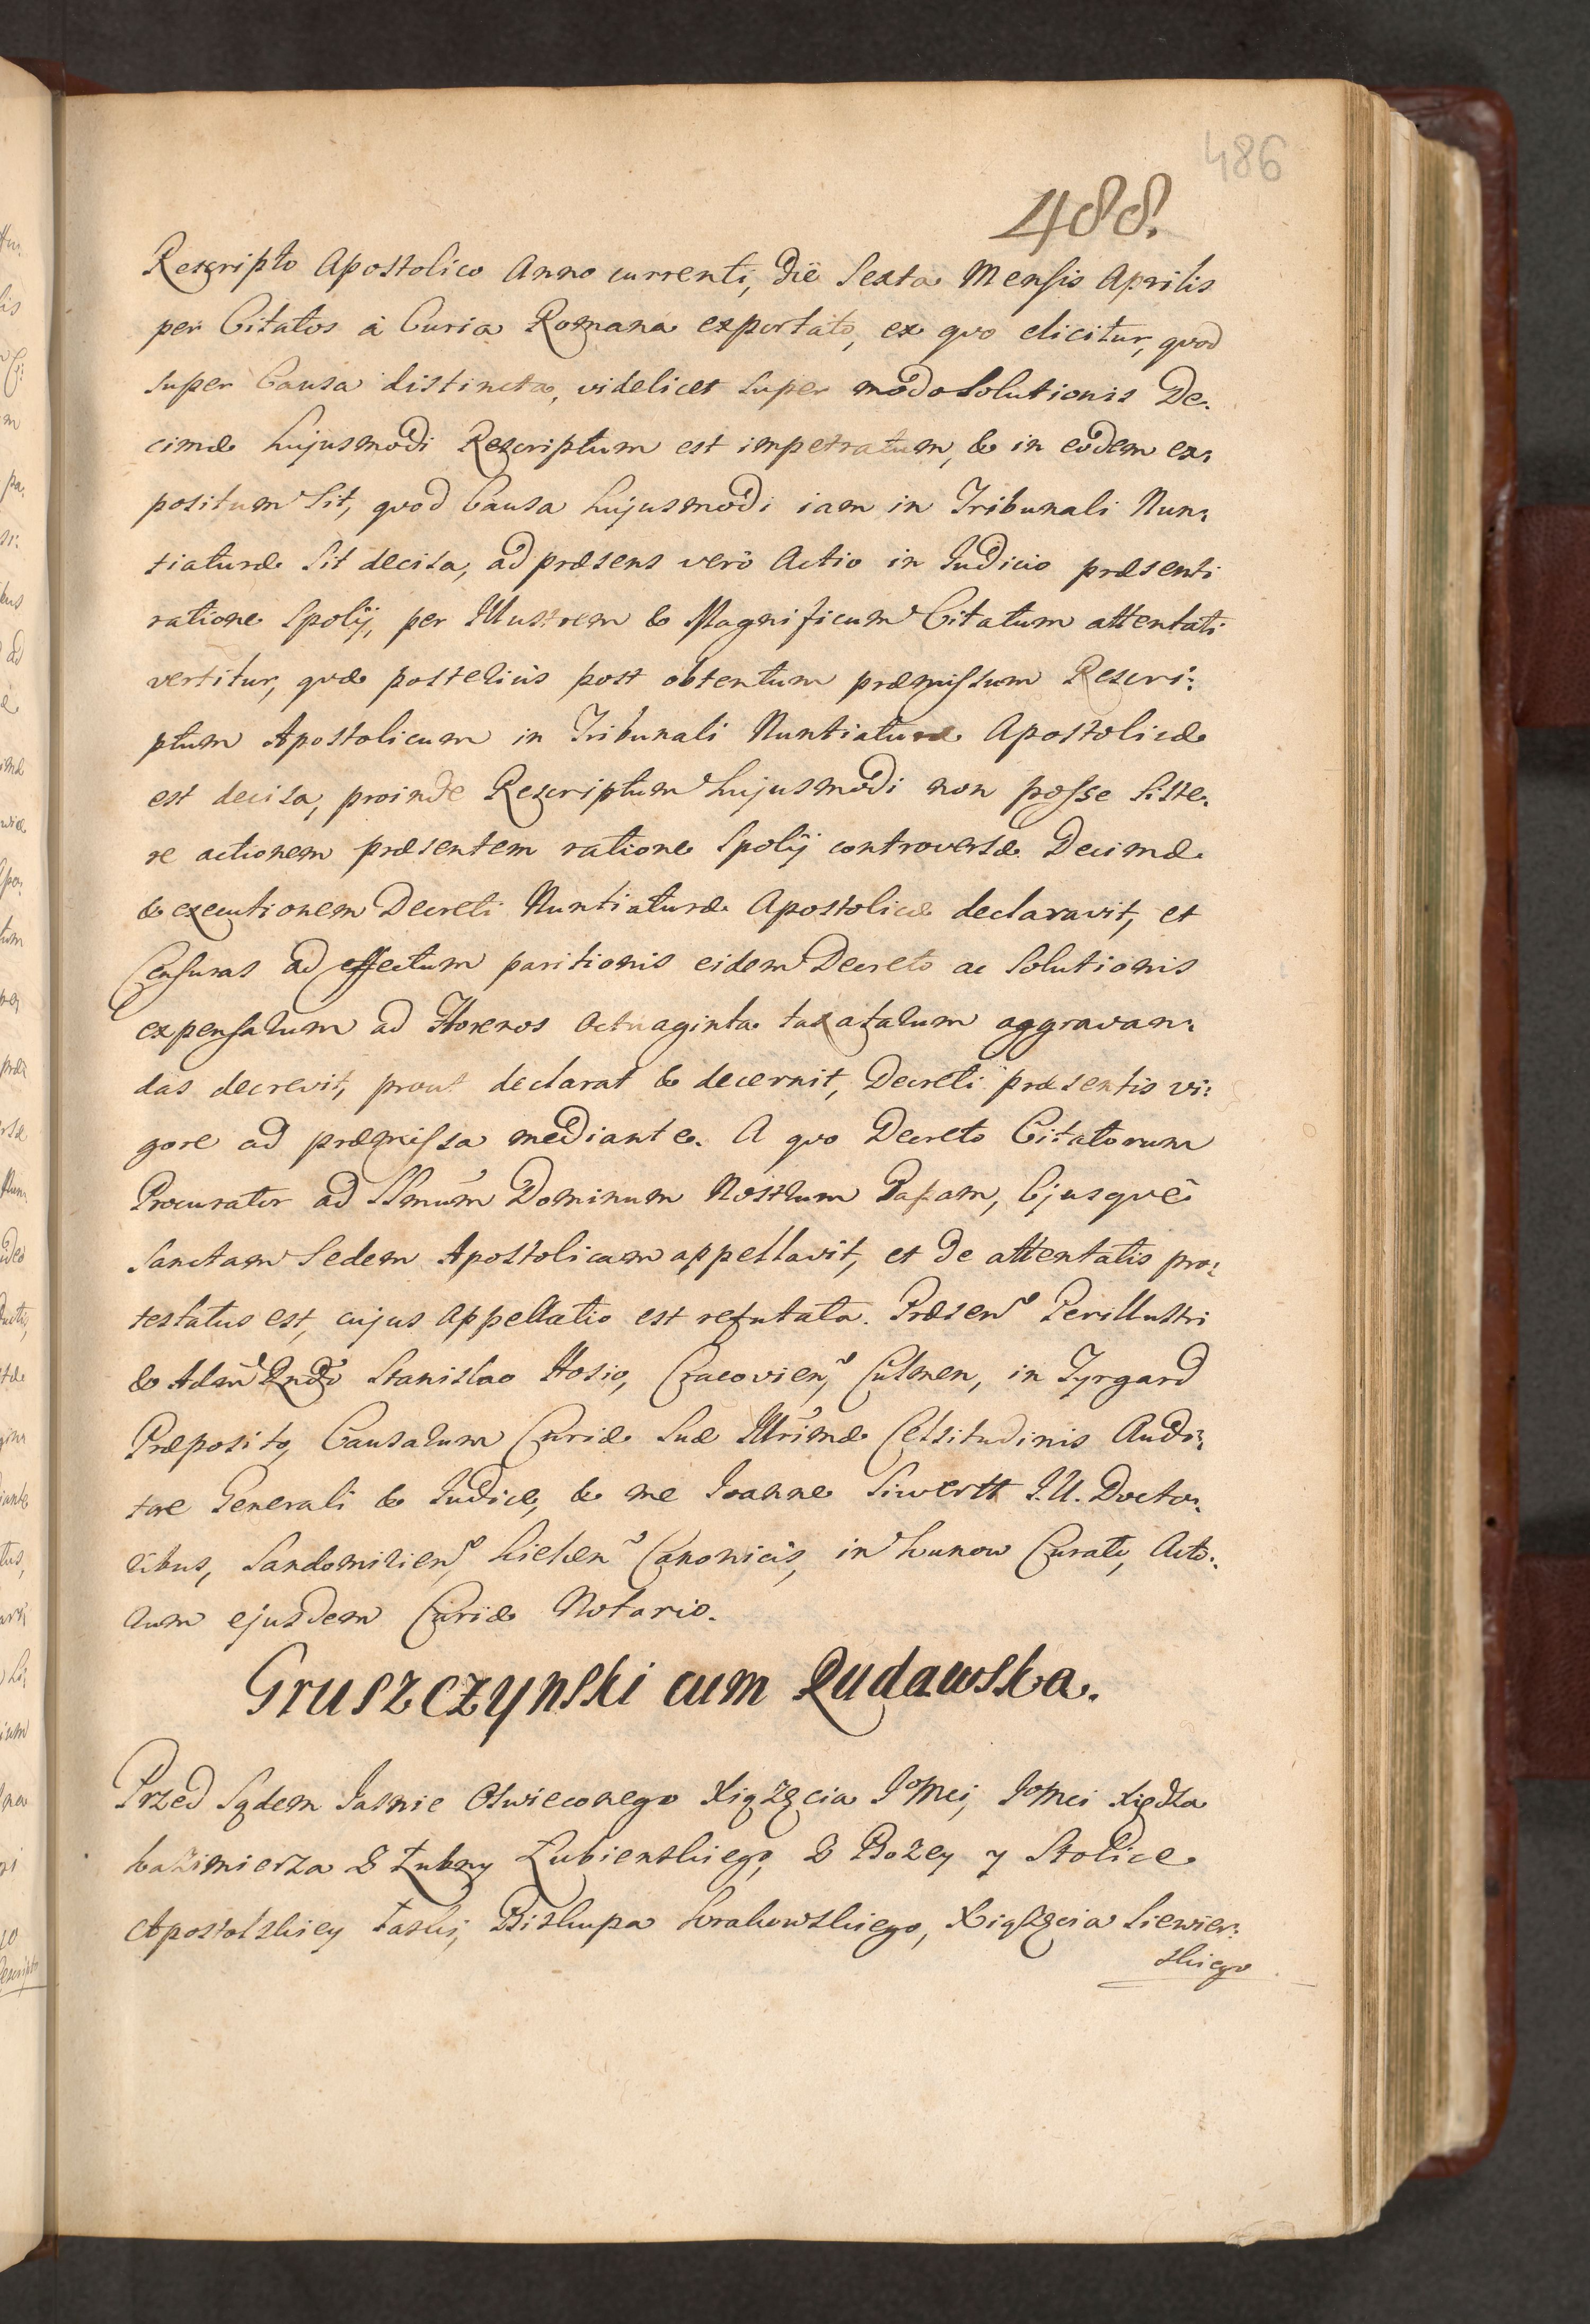 486
488.
Rescripto Apostolico Anno currenti, die Sexta Mensis Aprilis
per Citatos a Curia Romana exportato, ex quo elicitur, quod
super Causa distincta, videlicet super modo Solutionis De:
cimæ hujusmodi Rescriptum est impetratum, & in eodem ex:
positum sit, quod Causa hujusmodi iam in Tribunali Nun:
tiaturæ sit decisa, ad præsens verò Actio in Iudicio præsenti
ratione Spolij, per Illustrem & Magnificum Citatum attentati
vertitur, quæ posterius post obtentum præmissum Rescri:
ptum Apostolicum in Tribunali Nuntiaturæ Apostolicæ
est decisa, proinde Rescriptum hujusmodi non posse siste:
re actionem præsentem ratione Spolij controversæ Decimæ
& executionem Decreti Nuntiaturæ Apostolicæ declaravit, et
Censuras ad effectum paritionis eidem Decreto ac Solutionis
expensarum ad Florenos Octuaginta taxatarum aggravan:
das decrevit, prout declarat & decernit, Decreti præsentis vi:
gore ad præmissa mediante. A quo Decreto Citatorum
Procurator ad SSmum Dominum Nostrum Papam, Ejusque
Sanctam Sedem Apostolicam appellavit, et de attentatis pro:
testatus est, cujus Appellatio est refutata. Præsen Perillustri
& Adm Rndo Stanislao Hosio, Cracovien, Culmen, in Tyrgard
Præposito, Causarum Curiæ Suæ Illrimæ Celsitudinis Audi:
tore Generali & Iudice, & me Ioanne Siwertt I.U. Docto:
ribus, Sandomirien, Kielcen Canonicis, in Kunow Curato, Acto:
rum ejusdem Curiæ Notario.
Gruszczynski cum Rudawska.
Przed Sądem Jasnie Oswieconego Xiążęcia JoMci, JoMci Xiędza
Kazimierza z Łubny Łubienskiego, z Bozey y Stolice
Apostolskiey łaski, Biskupa Krakowskiego, Xiążęcia Siewier:
skiego